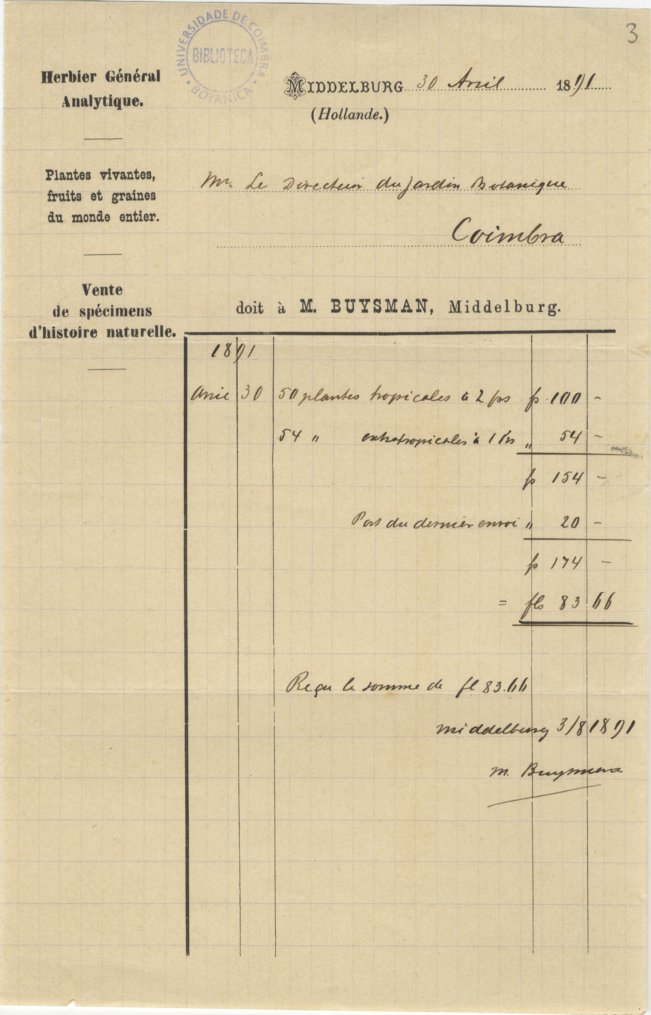 3
UNIVERSIDADE DE COIMBRA
BIBLIOTECA
BOTANICA
Herbier Général
Analytique.
MIDDELBURG 30 Avril 1891
(Hollande.)
Plantes vivantes,
fruits et graines
du monde entier.
Mr Le Directeur du Jardin Botanique
Coimbra
Vente
de spécimens
d'histoire naturelle.
doit à M. BUYSMAN, Middelburg.
1891
Avril 30 50 plantes tropicales à 2 frs fr 100 –
54 " extratropicales à 1 fr " 54 –
fr 154 –
Port du dernier envoi " 20 –
fr 174 –
= fls 83 66
Reçu la somme de fl 83.66
Middelburg 3/8 1891
M. Buysman